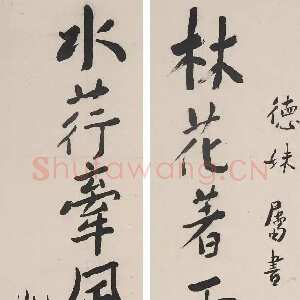 德妹属書
林花著
水荇牽風
Shufawang.CN